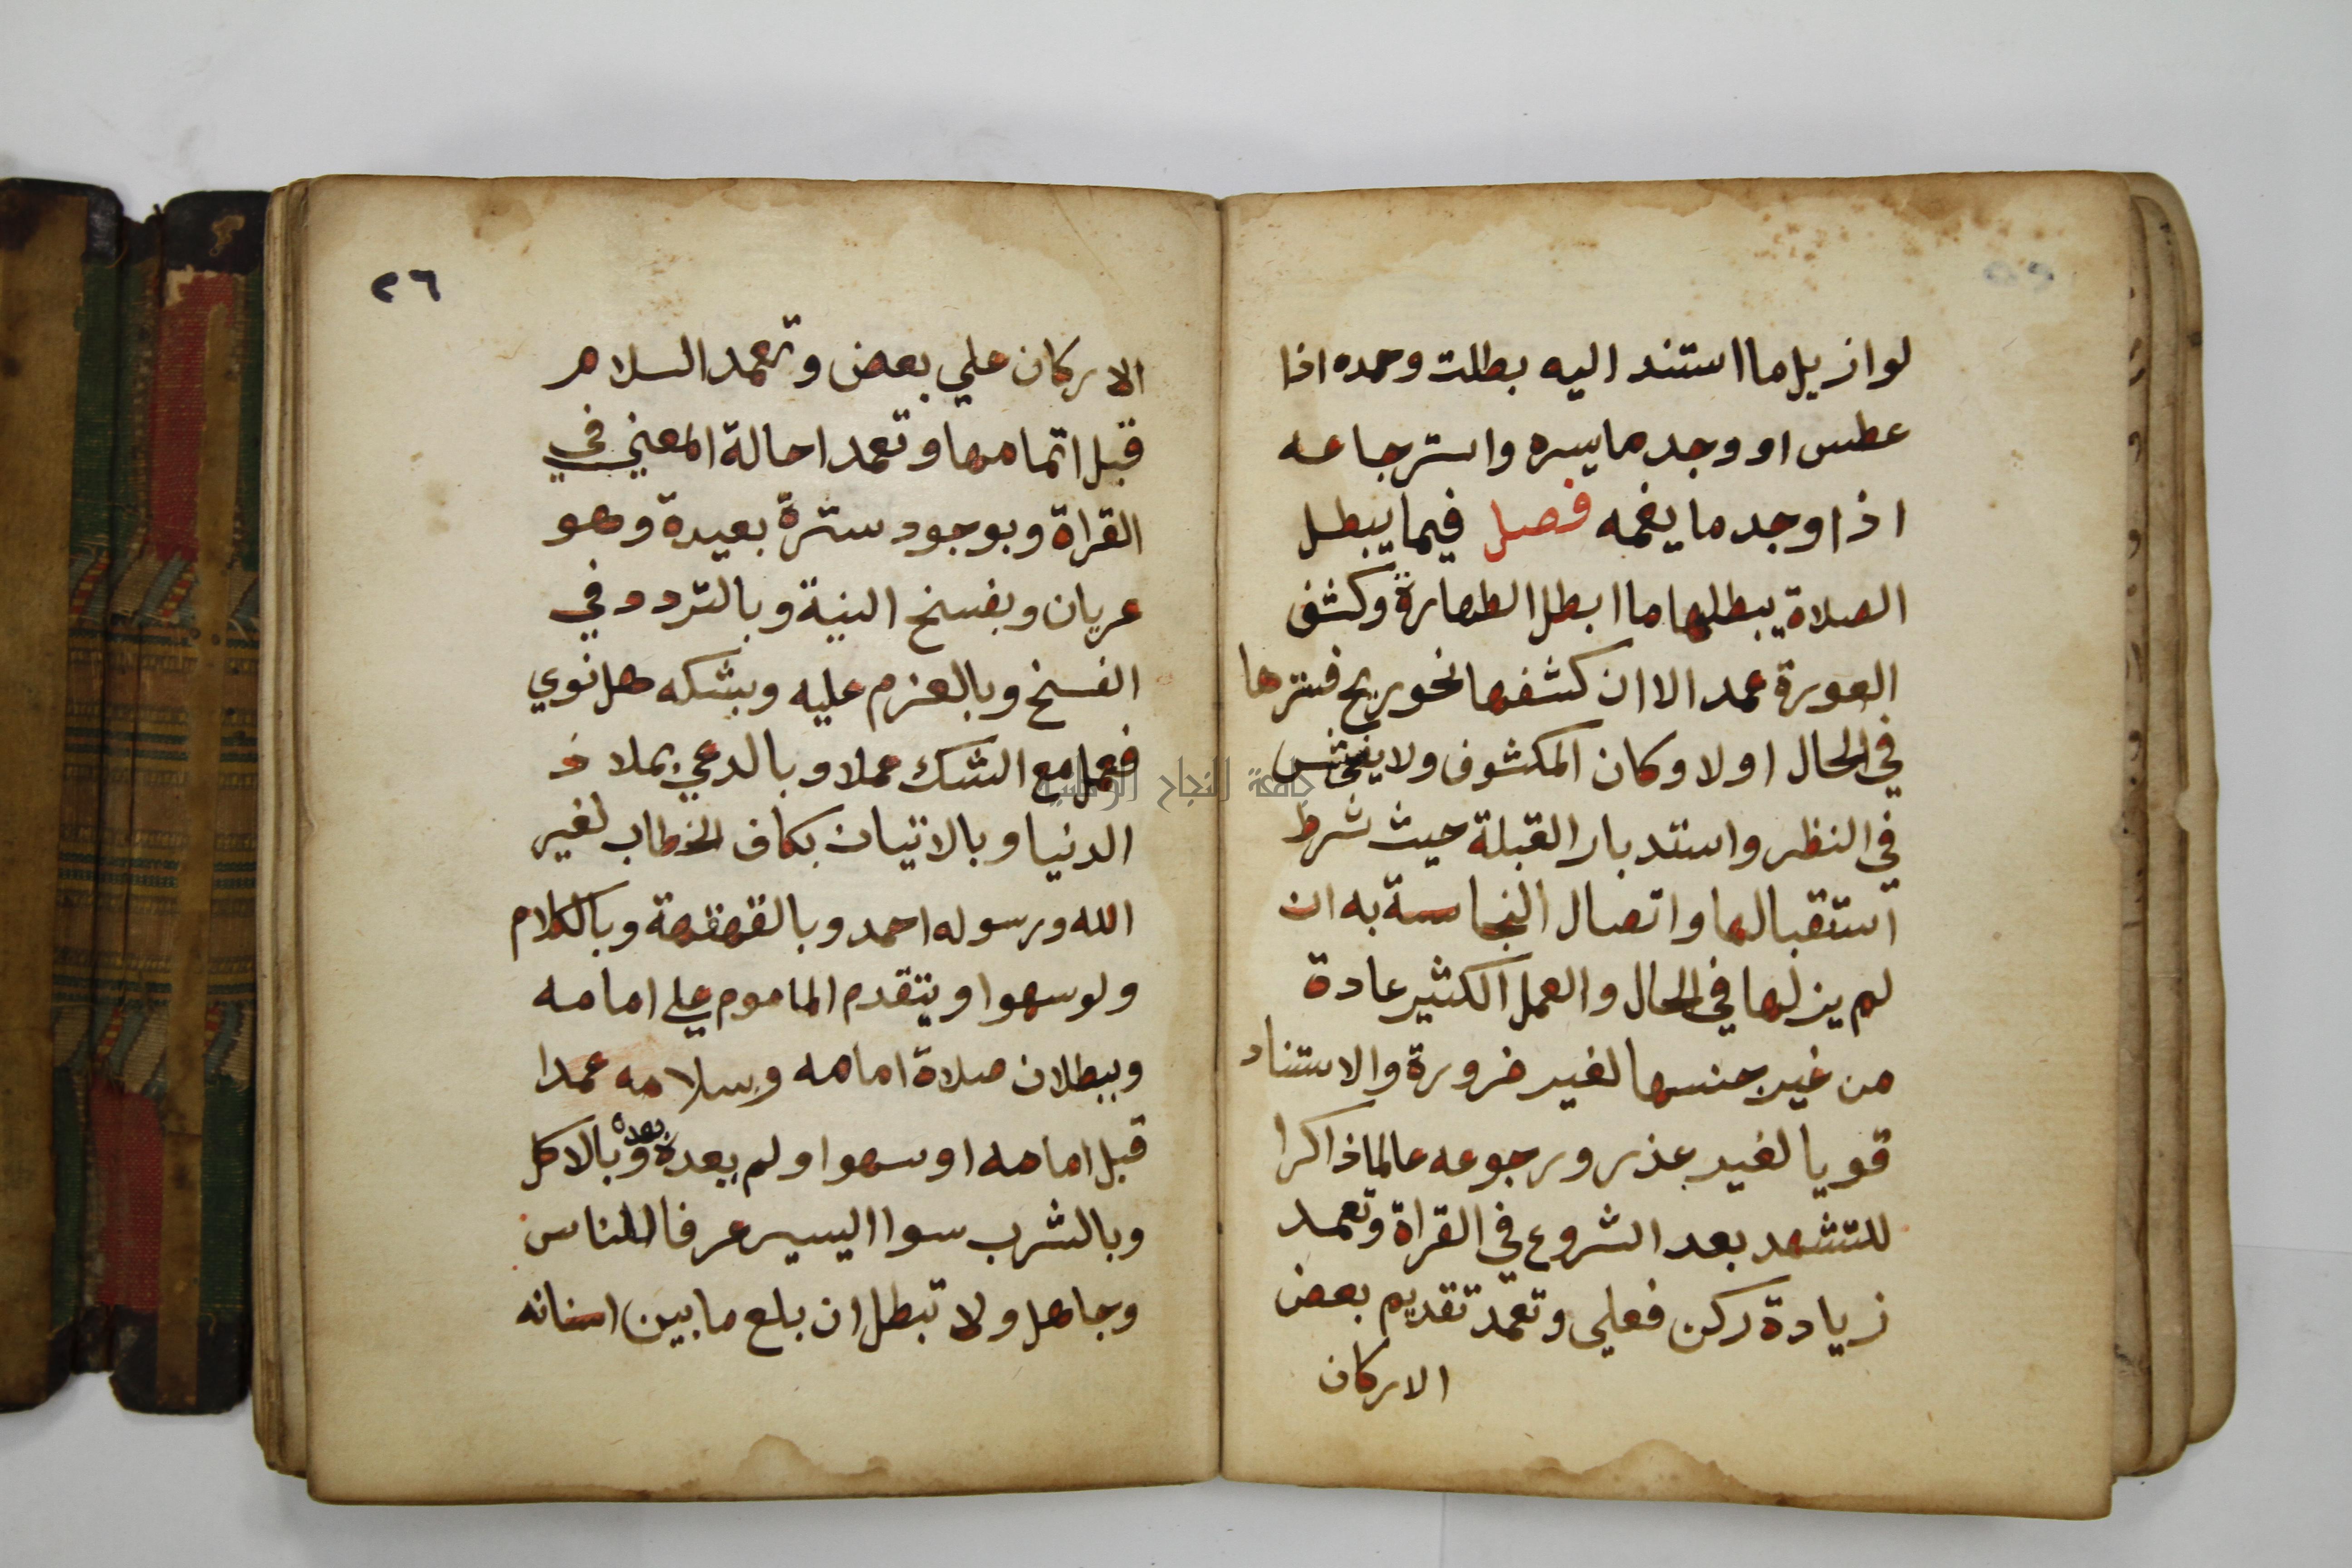 لو ازيل ما استند اليه بطلت وحمده اذا
عطس او وجد ما يسره واسترجاعه
اذا وجد ما يغمه فصل فيما يبطل
الصلاة يبطلها ما ابطل الطهارة وكشف
العورة عمد الا ان كشفها نحو ريح فسترها
في الحال اولا وكان المكشوف ولا يفحش
في النظر واستدبار القبلة حيث شرط
استقبالها واتصال النجاسة به ان
لم يزلها في الحال والعمل الكثير عادة
من غير جنسها لغير ضرورة والاستناد
قويا لغير عذر ورجوعه عالما ذاكرا
للتشهد بعد الشروع في القراة وتعمد
زيادة ركن فعلي وتعمد تقديم بعض
الاركان
٢٦
الاركان علي بعض وتعمد السلام
قبل اتمامها وتعمد احالة المعني في
القراة وبوجود سترة بعيدة وهو
عريان وبفسخ النية وبالتردد في
الفسخ وبالعزم عليه وبشكه هل نوي
فعمل مع الشك عملا وبالدعي بملاذ
الدنيا وبالاتيان بكاف الخطاب لغير
الله ورسوله احمد وبالقهقهة وبالكلام
ولو سهوا وبتقدم الماموم علي امامه
وببطلان صلاة امامه وسلامه عمدا
قبل امامه او سهوا ولم يعده بعده وبالاكل
وبالشرب سوا اليسير عرفا للناس
وجاهل ولا تبطل ان بلع ما بين اسنانه
جامعة النجاح الوطنية